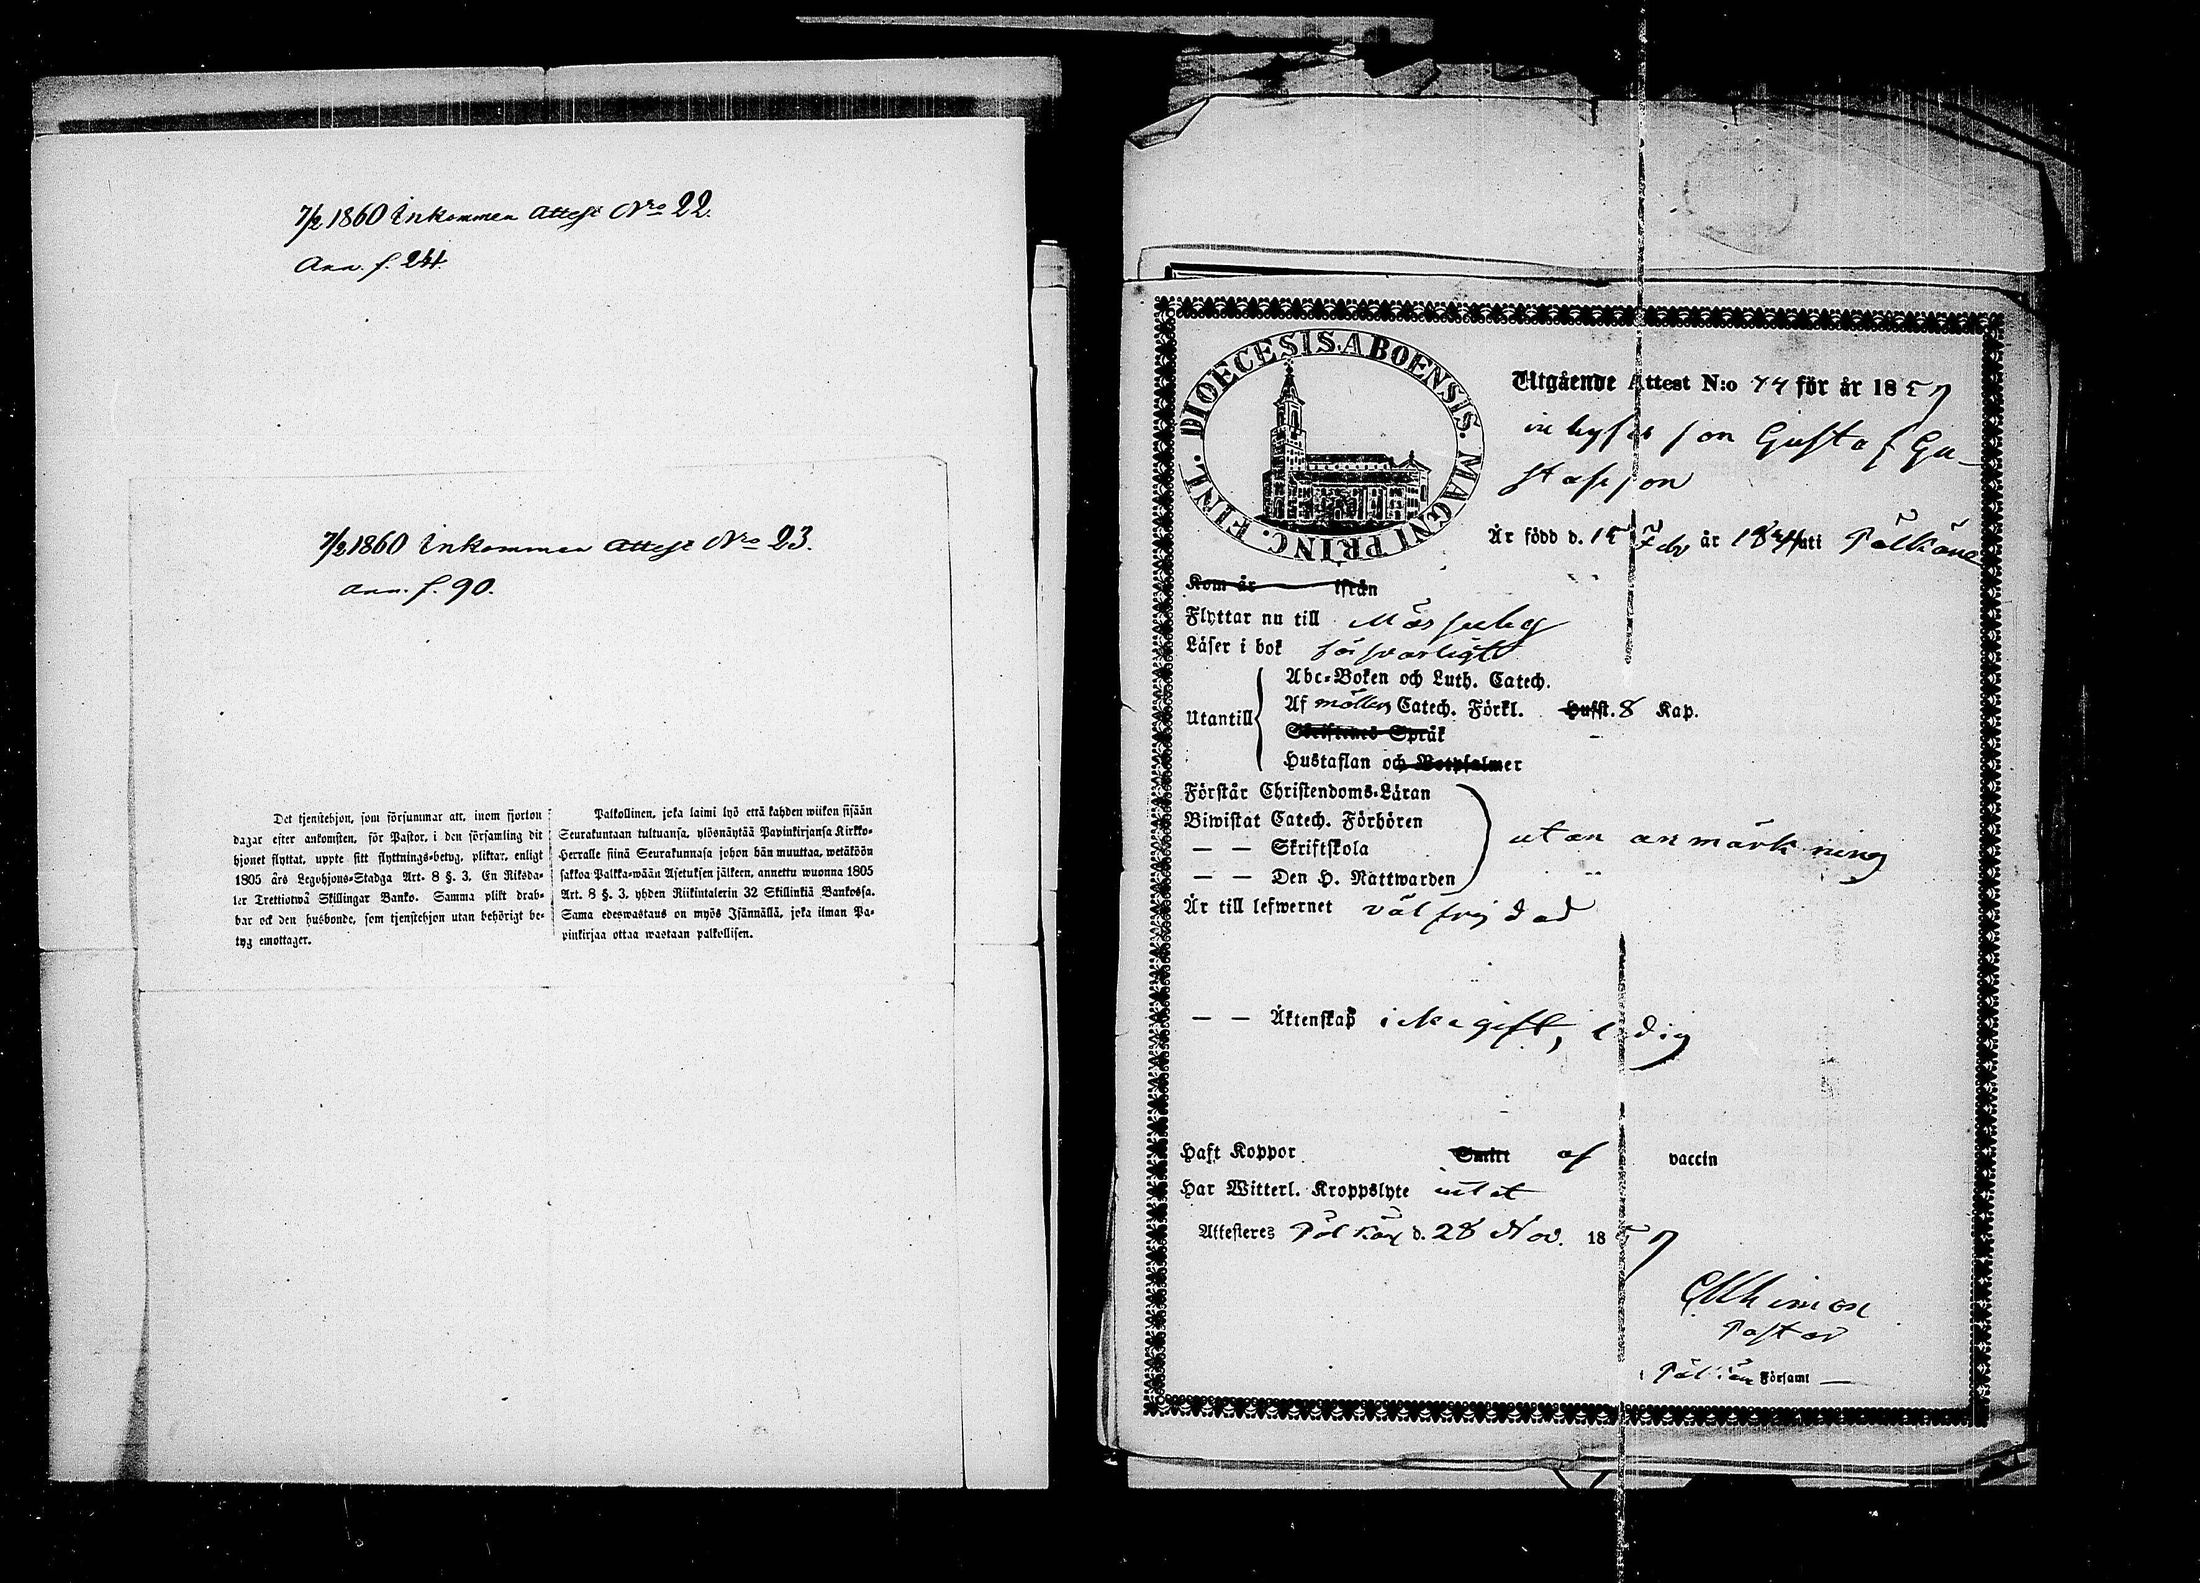 7/2 1860 Inkommen Attest Nro 22.
Ann. f. 24.
7/2 1860 Inkommen Attest Nro 23.
Ann. f. 90.
Det tjenstehjon, som försummar att, inom fjorton
dagar efter ankomsten, för Pastor, i den församling dit
hjonet flyttat, uppte sitt flyttnings-betyg, pliktar, enligt
1805 års Legohjons-Stadga Art. 8 §. 3. En Riksda-
ler Trettiotwå Skillingar Banko. Samma plikt drab-
bar ock den husbonde, som tjenstehjon utan behörigt be-
tyg emottager.
Palkollinen, joka laimi lyö että kahden wiikon sisään
Seurakuntaan tultuansa, ylösnäytää Papinkirjansa Kirkko-
Herralle siinä Seurakunnasa johon hän muuttaa, wetäköön
sakkoa Palkka-wään Asetuksen jälkeen, annettu wuonna 1805
Art. 8 §. 3, yhden Riikintalerin 32 Skillinkiä Bankossa.
Sama edeswastaus on myös Isännällä, joka ilman Pa-
pinkirjaa ottaa wastaan palkollisen.
DIOECESIS ABOENSIS. MAGNI PRINC. FINL.
Utgående Attest N:o 44 för år 1857
inhyses son Gustaf Gu-
stafsson
Är född d. 15 Feb år 1844 uti Pälkäne
Kom år ifrån
Flyttar nu till
Läser i bok försvarligt
Abc-Boken och Luth. Catech.
Utantill Af möllers Catech. Förkl. Husst. 8 Kap.
Skriftenes Språk
Hustaflan och Botpsalmer
Förstår Christendoms-Läran
Biwistat Catech. Förhören
— — Skriftskola utan anmärkning
— — Den H. Nattwarden
Är till lefwernet välfrejdad
— — Äktenskap icke gift, ledig
Haft Koppor Smitt af vaccin
Har Witterl. Kroppslyte intet
Attesteres Pälkäne d. 28 Nov. 1857
Pastor
i Pälkäne Församl